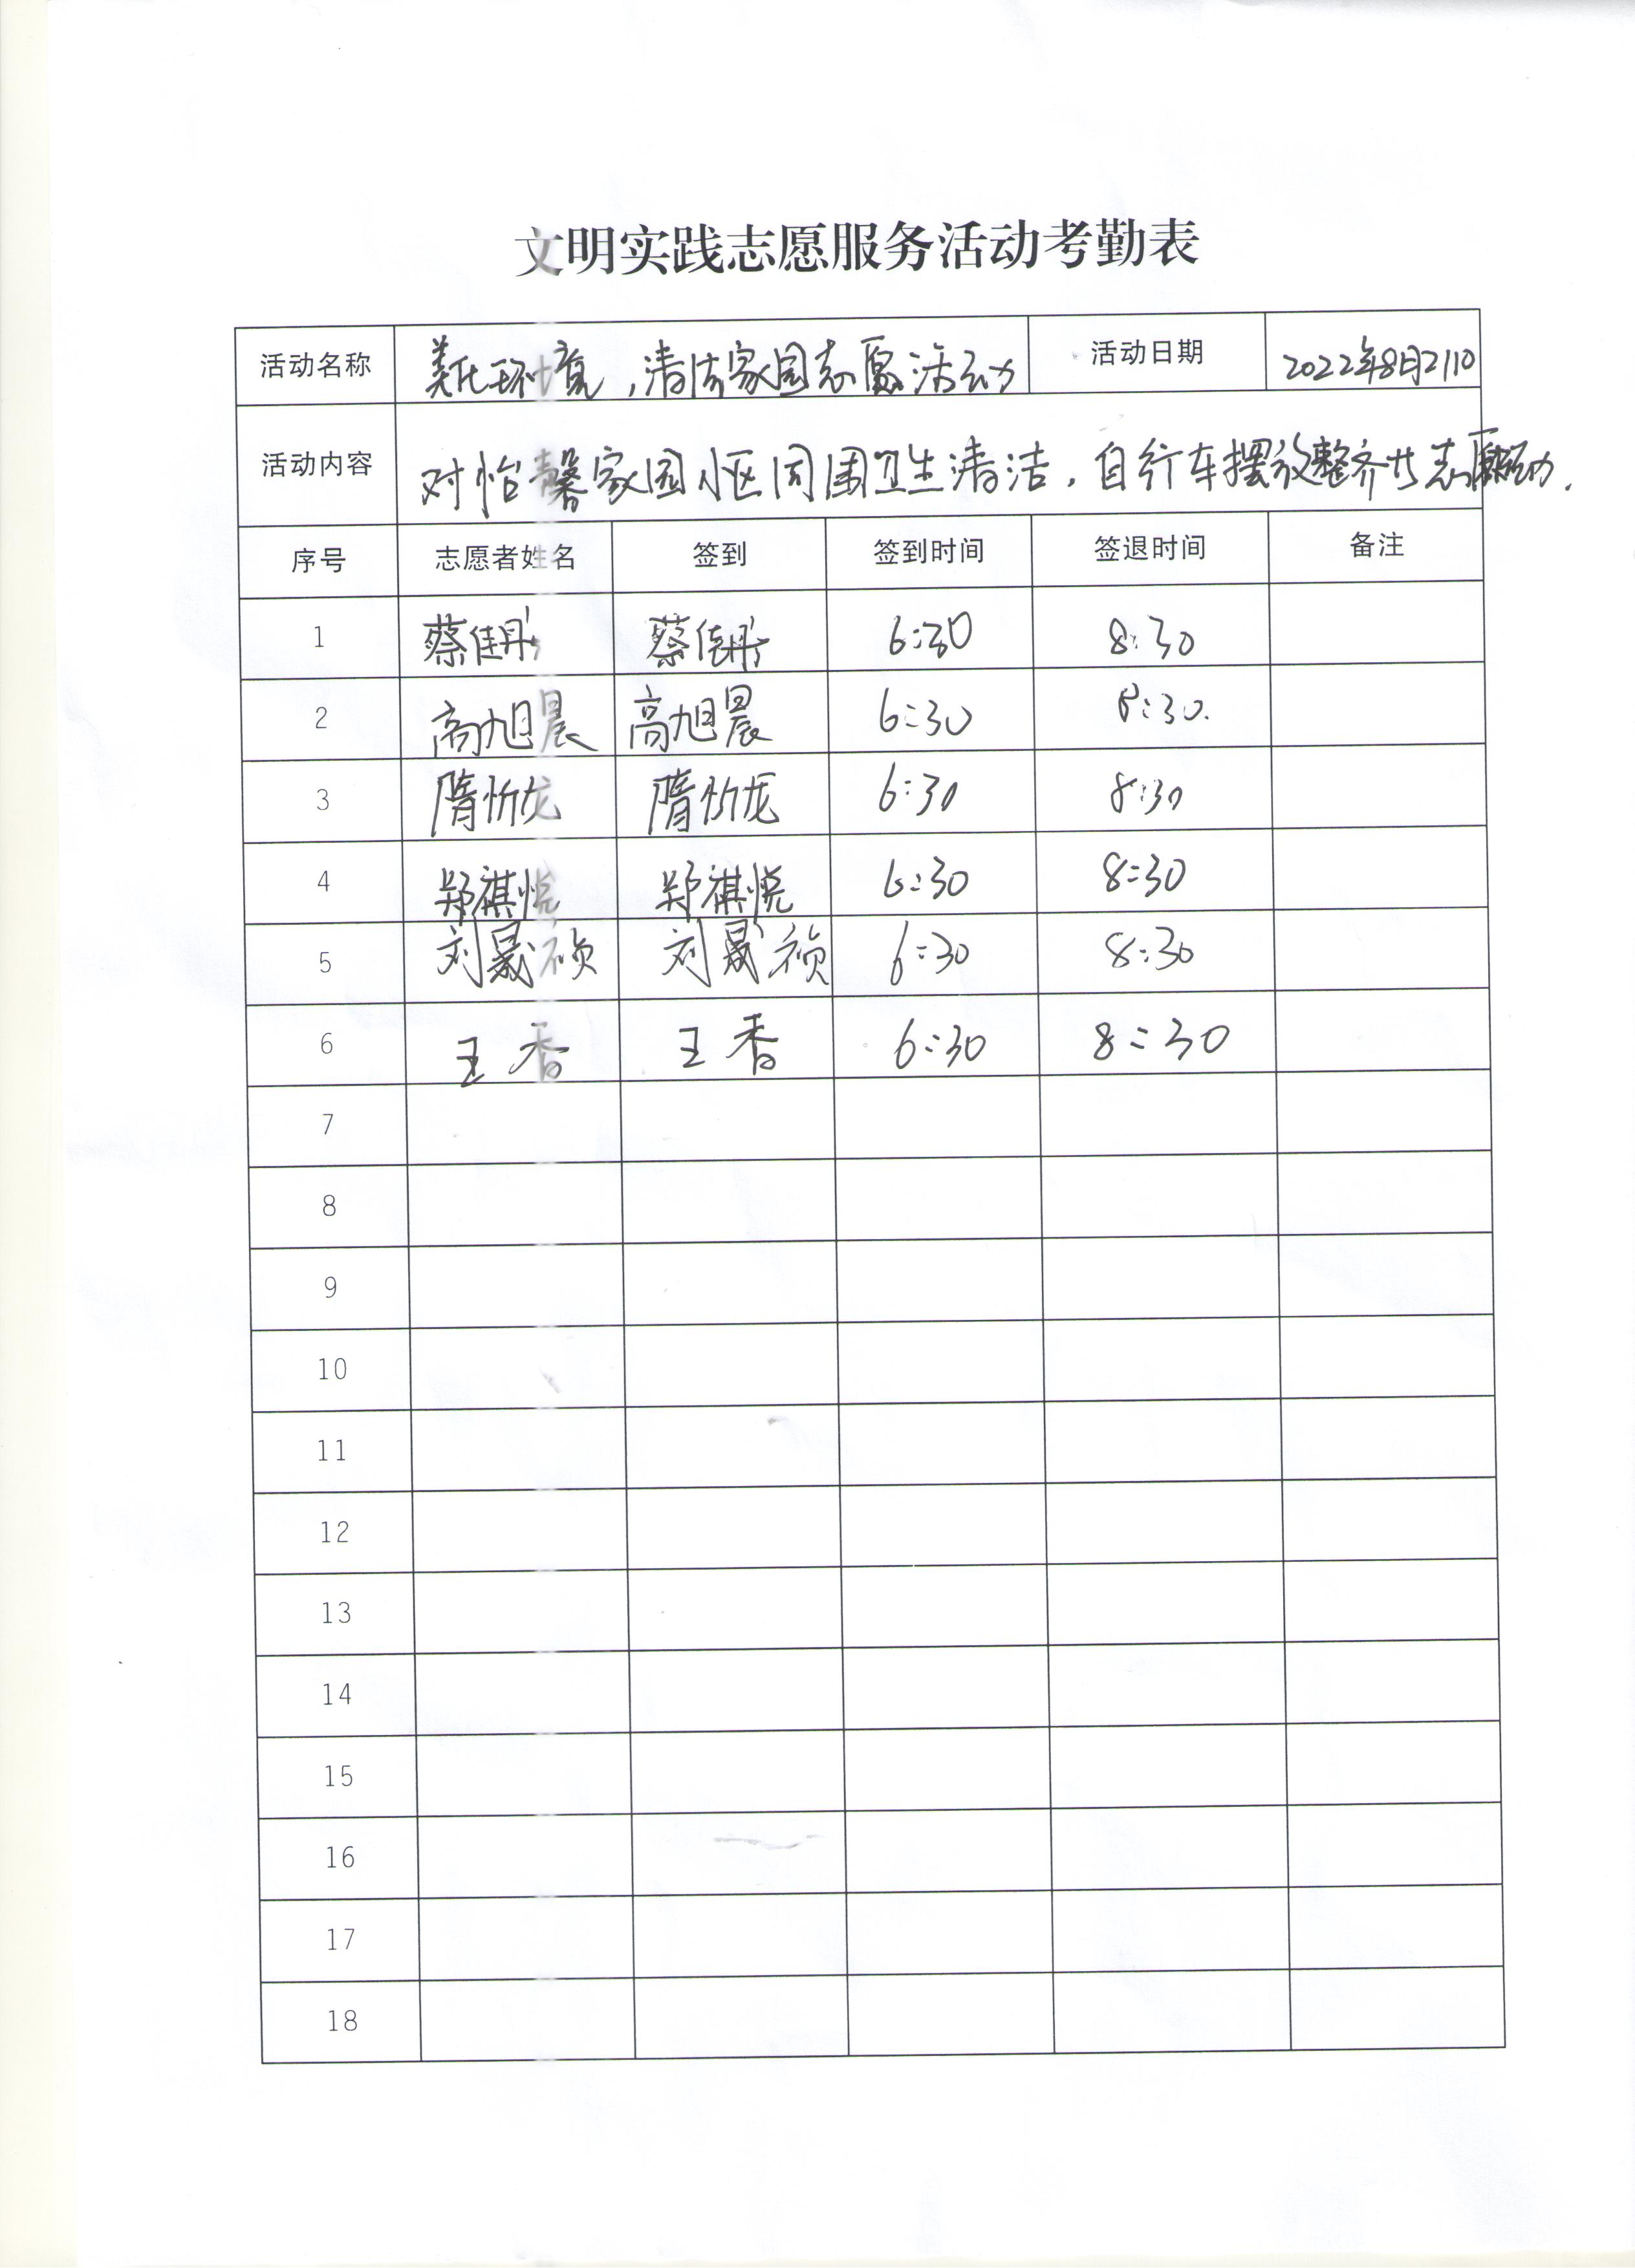 文明实践志愿服务活动考勤表
活动名称 美化环境，清洁家园志愿活动 活动日期 2022年8月21日
活动内容 对怡馨家园小区周围卫生清洁，自行车摆放整齐 志愿活动.
序号 志愿者姓名 签到 签到时间 签退时间 备注
1 蔡佳彤 蔡佳彤 6:30 8:30
2 高旭晨 高旭晨 6:30 8:30.
3 隋忻龙 隋忻龙 6:30 8:30
4 郑祺悦 郑祺悦 6:30 8:30
5 刘晟祯 刘晟祯 6:30 8:30
6 王香 王香 6:30 8:30
7
8
9
10
11
12
13
14
15
16
17
18